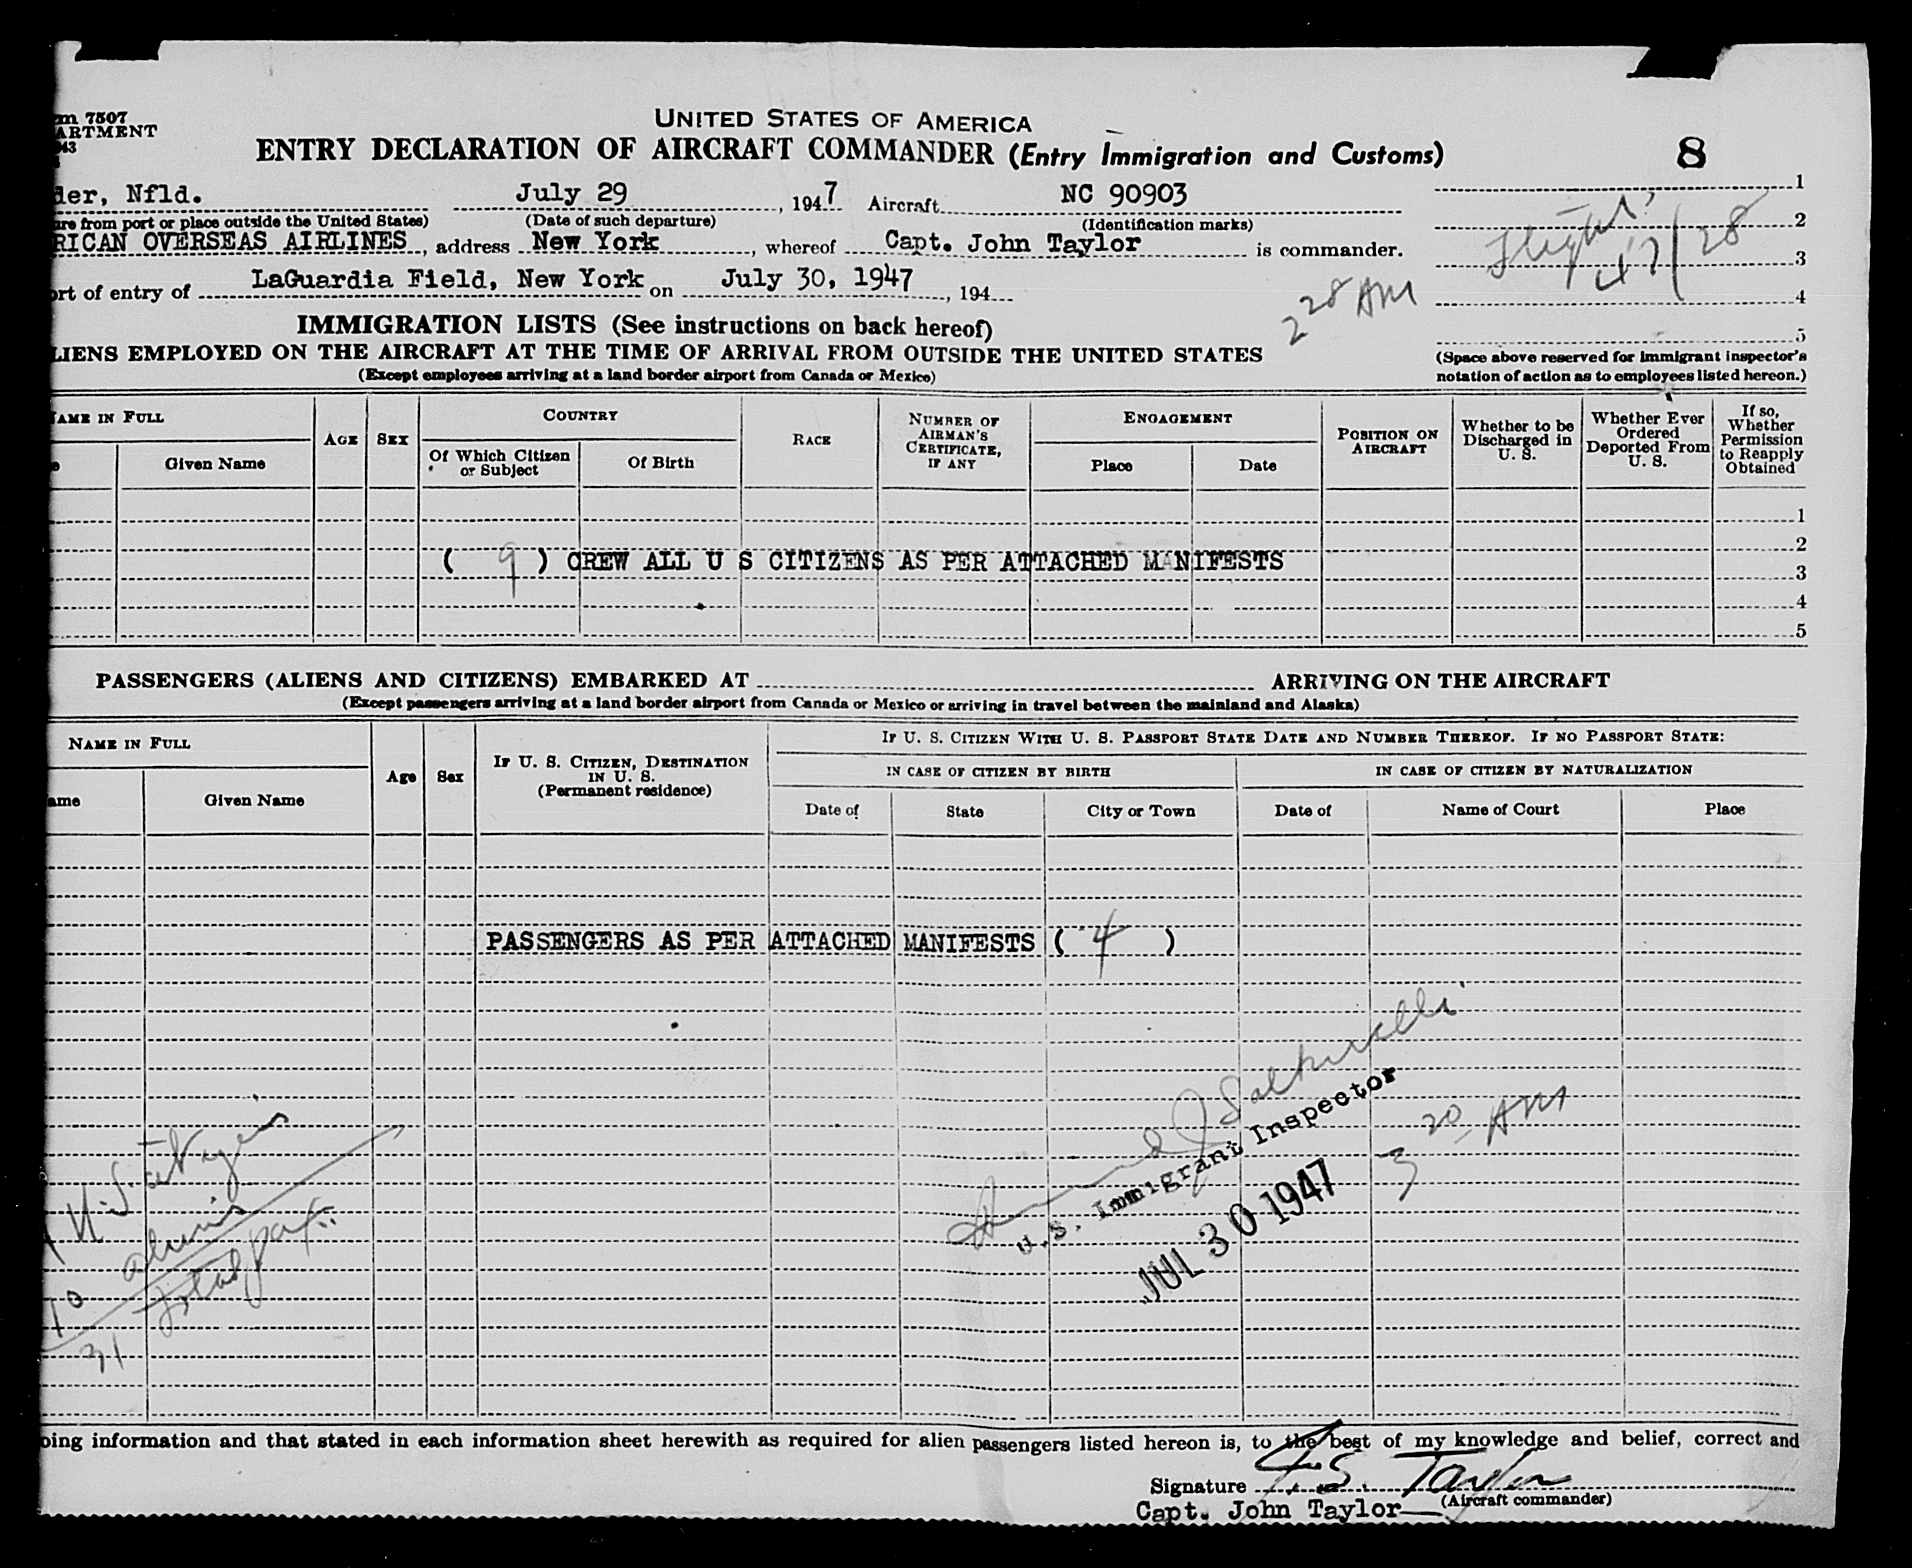 m 7507
ARTMENT
43
UNITED STATES OF AMERICA
ENTRY DECLARATION OF AIRCRAFT COMMANDER (Entry Immigration and Customs)
8
der, Nfld. July 29, 1947 Aircraft NC 90903
ure from port or place outside the United States) (Date of such departure) (Identification marks)
RICAN OVERSEAS AIRLINES, address New York, whereof Capt. John Taylor is commander.
ort of entry of LaGuardia Field, New York on July 30, 1947, 194
1
2
3
4
5
Flight
47/28
2 28 AM
IMMIGRATION LISTS (See instructions on back hereof)
LIENS EMPLOYED ON THE AIRCRAFT AT THE TIME OF ARRIVAL FROM OUTSIDE THE UNITED STATES
(Except employees arriving at a land border airport from Canada or Mexico)
(Space above reserved for immigrant inspector's
notation of action as to employees listed hereon.)
NAME IN FULL
Given Name
AGE
SEX
COUNTRY
Of Which Citizen
or Subject
Of Birth
RACE
NUMBER OF
AIRMAN'S
CERTIFICATE,
IF ANY
ENGAGEMENT
Place
Date
POSITION ON
AIRCRAFT
Whether to be
Discharged in
U. S.
Whether Ever
Ordered
Deported From
U. S.
If so,
Whether
Permission
to Reapply
Obtained
1
2
( 9 ) CREW ALL U S CITIZENS AS PER ATTACHED MANIFESTS
3
4
5
PASSENGERS (ALIENS AND CITIZENS) EMBARKED AT ARRIVING ON THE AIRCRAFT
(Except passengers arriving at a land border airport from Canada or Mexico or arriving in travel between the mainland and Alaska)
NAME IN FULL
ame
Given Name
Age
Sex
IF U. S. CITIZEN, DESTINATION
IN U. S.
(Permanent residence)
IF U. S. CITIZEN WITH U. S. PASSPORT STATE DATE AND NUMBER THEREOF. IF NO PASSPORT STATE:
IN CASE OF CITIZEN BY BIRTH
IN CASE OF CITIZEN BY NATURALIZATION
Date of
State
City or Town
Date of
Name of Court
Place
PASSENGERS AS PER ATTACHED MANIFESTS ( 4 )
U.S. Immigrant Inspector
JUL 30 1947
3 20 AM
U.S. citizens
10 aliens
31 total pax.
oing information and that stated in each information sheet herewith as required for alien passengers listed hereon is, to the best of my knowledge and belief, correct and
Signature J.S. Taylor
(Aircraft commander)
Capt. John Taylor